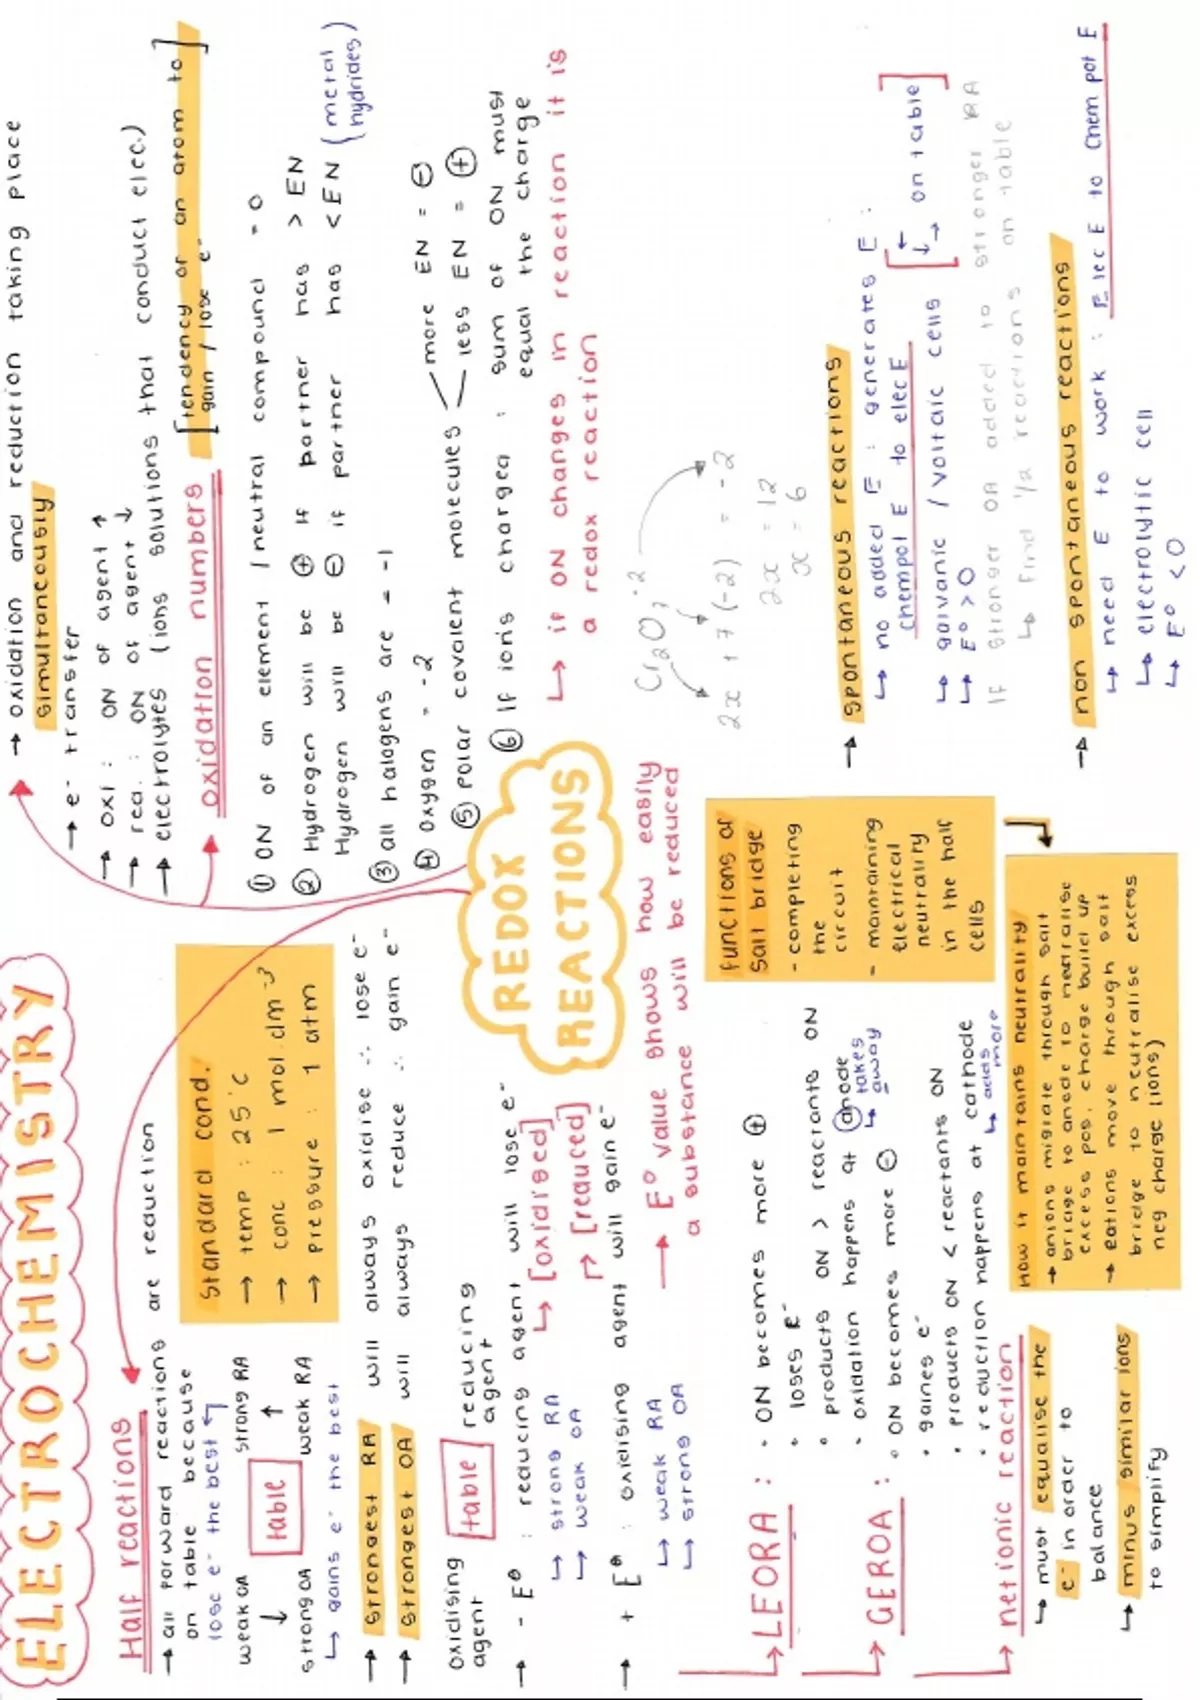 ELECTROCHEMISTRY
Half reactions
→ all forward reactions are reduction
on table because
lose e⁻ the best
weak OA strong RA
↓ table ↑
strong OA weak RA
↳ gains e⁻ the best
Standard cond.
→ temp : 25°C
→ conc : 1 mol.dm⁻³
→ pressure : 1 atm
→ strongest RA will always oxidise ∴ lose e⁻
→ strongest OA will always reduce ∴ gain e⁻
oxidising agent table reducing agent
→ - E⁰ : reducing agent will lose e⁻
↳ strong RA ↳ [oxidised]
↳ weak OA
→ + E⁰ : oxidising agent will gain e⁻
↳ weak RA [reduced]
↳ strong OA
→ E⁰ value shows how easily
a substance will be reduced
→ LEORA : • ON becomes more ⊕
• loses e⁻
• products ON > reactants ON
• oxidation happens at anode
↳ takes
away
→ GEROA : • ON becomes more ⊖
• gaines e⁻
• products ON < reactants ON
• reduction happens at cathode
↳ adds
more
→ net ionic reaction
↳ must equalise the
e⁻ in order to
balance
↳ minus similar ions
to simplify
functions of
salt bridge
- completing
the
circuit
- maintaining
electrical
neutrality
in the half
cells
How it maintains neutrality
→ anions migrate through salt
bridge to anode to neutralise
excess pos. charge build up
→ cations move through salt
bridge to neutralise excess
neg charge (ions)
REDOX
REACTIONS
→ oxidation and reduction taking place
simultaneously
→ e⁻ transfer
→ oxi : ON of agent ↑
→ red. : ON of agent ↓
→ electrolytes (ions solutions that conduct elec.)
oxidation numbers [tendency of an atom to
gain / lose e⁻]
① ON of an element / neutral compound = 0
② Hydrogen will be ⊕ if partner has > EN
Hydrogen will be ⊖ if partner has < EN (metal
hydrides)
③ all halogens are = -1
④ oxygen = -2
⑤ polar covalent molecules < more EN = ⊖
less EN = ⊕
⑥ If ions charged : sum of ON must
equal the charge
↳ if ON changes in reaction it is
a redox reaction
Cr₂O₇⁻²
2x + 7(-2) = -2
2x = 12
x = 6
→ spontaneous reactions
↳ no added E : generates E :
chempot E to elec E
↳ galvanic / voltaic cells [↓→ on table]
↳ E⁰ > 0
If stronger OA added to stronger RA
↳ find 1/2 reactions on table
→ non spontaneous reactions
↳ need E to work : Elec E to chem pot E
↳ electrolytic cell
↳ E⁰ < 0